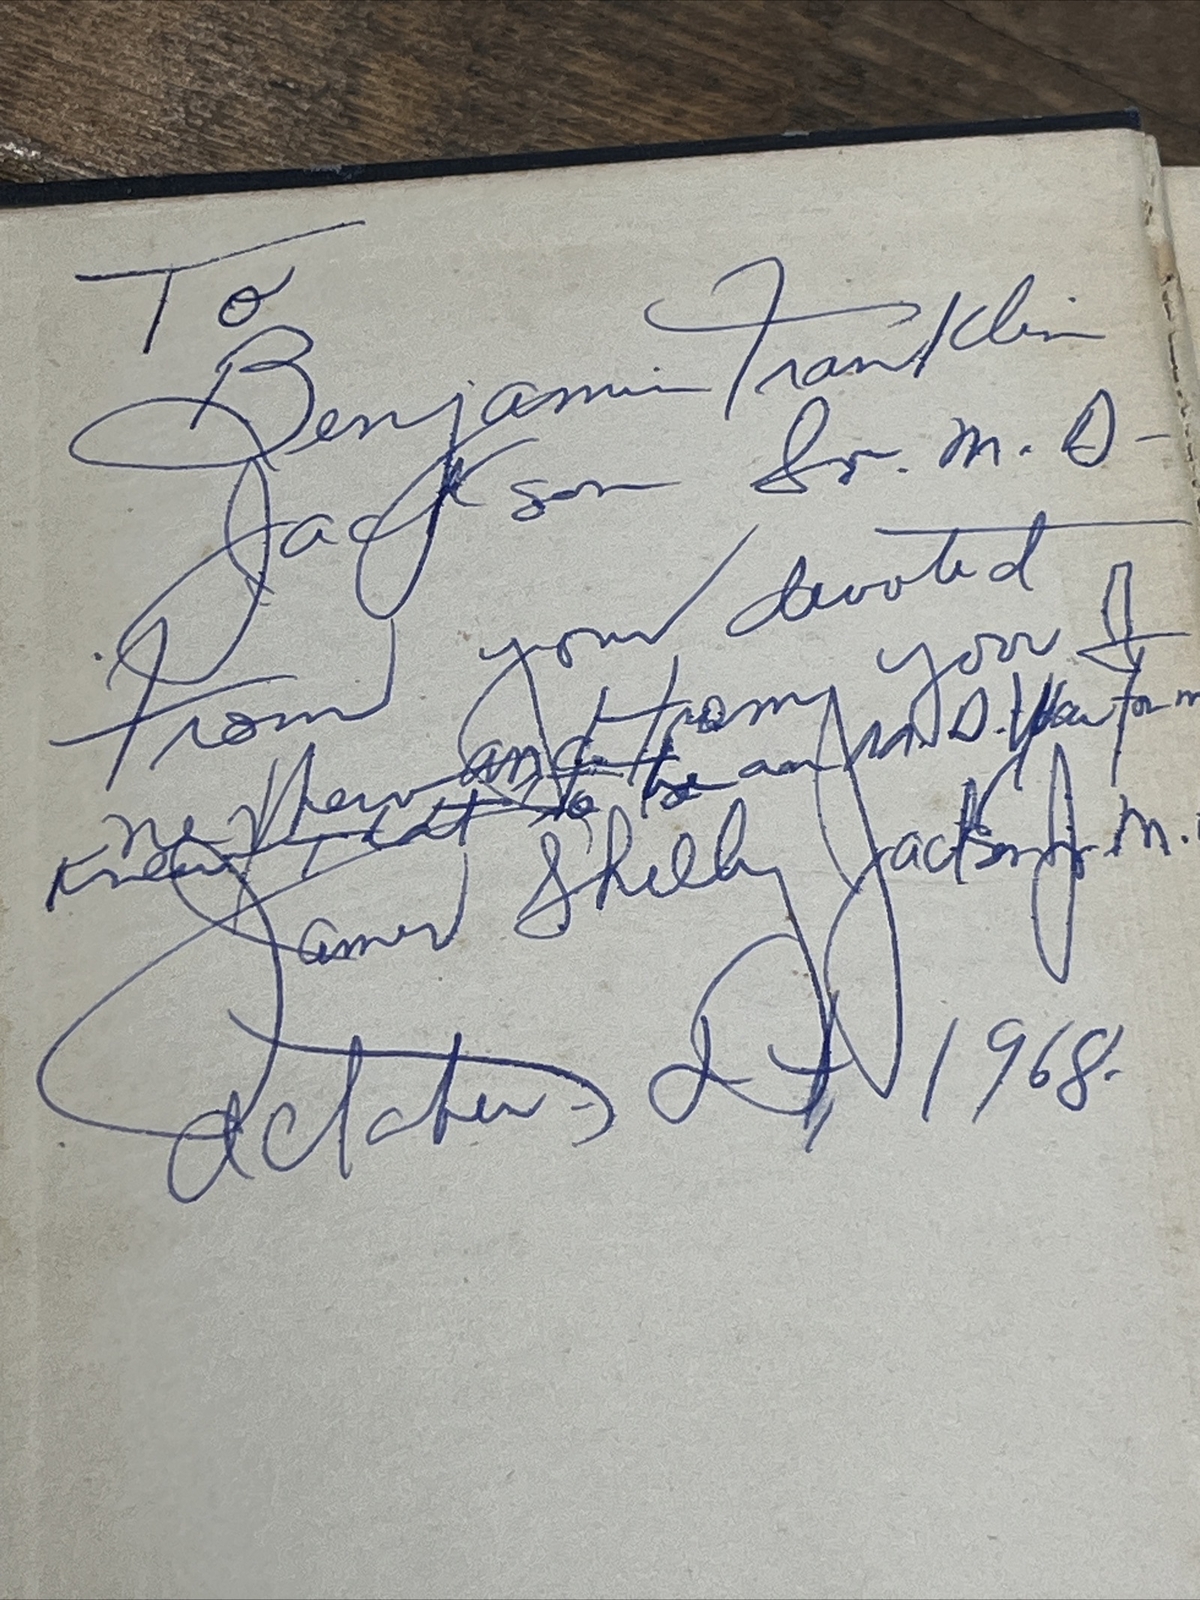 To
Benjamin Franklin
Jackson Sr. M.D-
From your devoted
nephew and from you I
Knew I at to be an M.D. 
James Shelby Jackson Jr. M.
October, 27, 1968.